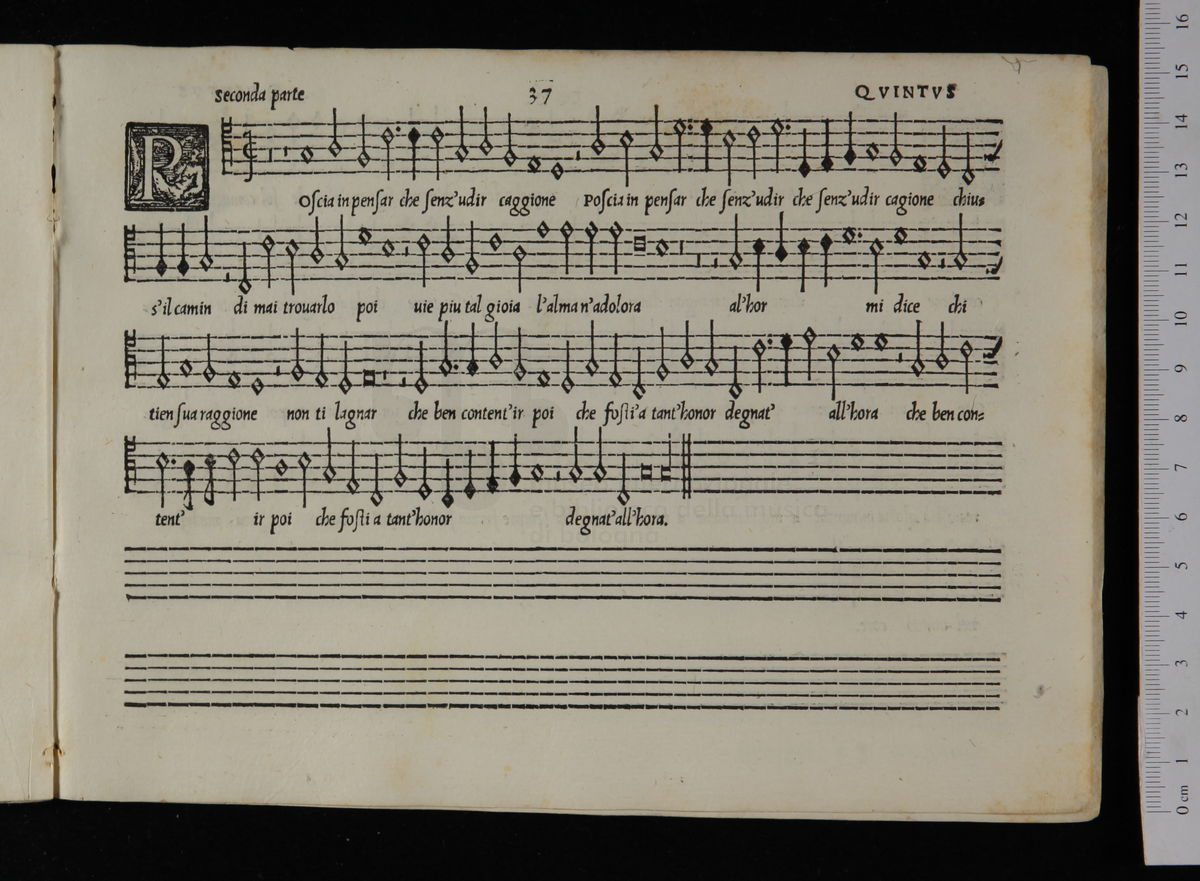 Seconda parte 37 QVINTVS
R
Oſcia in penſar che ſenz'udir caggione Poſcia in penſar che ſenz'udir che ſenz'udir cagione chiu=
s'il camin di mai trouarlo poi uie piu tal gioia l'alma n'adolora al'hor mi dice chi
tien ſua raggione non ti lagnar che ben content'ir poi che foſti'a tant'honor degnat' all'hora che ben con=
tent' ir poi che foſti a tant'honor degnat'all'hora.
e biblioteca della musica
di bologna
16
15
14
13
12
11
10
9
8
7
6
5
4
3
2
1
0 cm